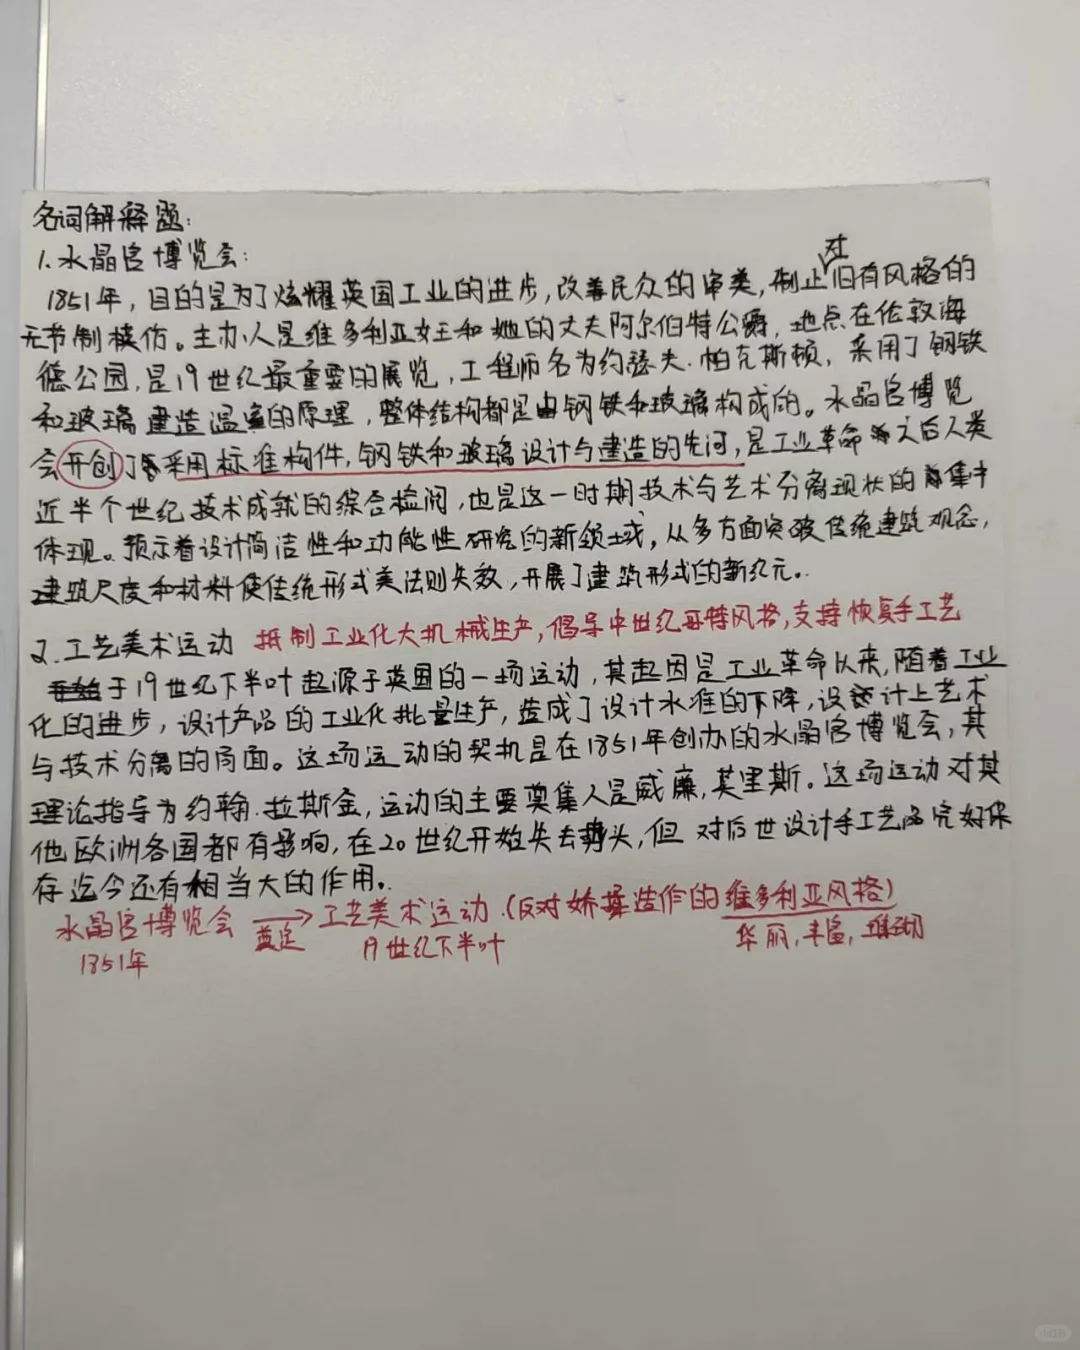 名词解释题:
1.水晶宫博览会:
1851年,目的是为了炫耀英国工业的进步,改善民众的审美,制止对旧有风格的
无节制模仿。主办人是维多利亚女王和她的丈夫阿尔伯特公爵,地点在伦敦海
德公园,是19世纪最重要的展览,工程师名为约瑟夫.帕克斯顿,采用了钢铁
和玻璃建造温室的原理,整体结构都是由钢铁和玻璃构成的。水晶宫博览
会开创了采用标准构件,钢铁和玻璃设计与建造的先河,是工业革命之后人类
近半个世纪技术成就的综合检阅,也是这一时期技术与艺术分离现状的集中
体现。预示着设计简洁性和功能性研究的新领域,从多方面突破传统建筑观念,
建筑尺度和材料使传统形式美法则失效,开展了建筑形式的新纪元。
2.工艺美术运动 抵制工业化大机械生产,倡导中世纪哥特风格,支持恢复手工艺
于19世纪下半叶起源于英国的一场运动,其起因是工业革命以来,随着工业
化的进步,设计产品的工业化批量生产,造成了设计水准的下降,设计上艺术
与技术分离的局面。这场运动的契机是在1851年创办的水晶宫博览会,其
理论指导为约翰.拉斯金,运动的主要奠基人是威廉,莫里斯。这场运动对其
他欧洲各国都有影响,在20世纪开始失去势头,但对后世设计手工艺品完好保
存迄今还有相当大的作用。
水晶宫博览会 奠定→ 工艺美术运动.(反对矫揉造作的维多利亚风格)
1851年 19世纪下半叶 华丽,丰富,堆砌